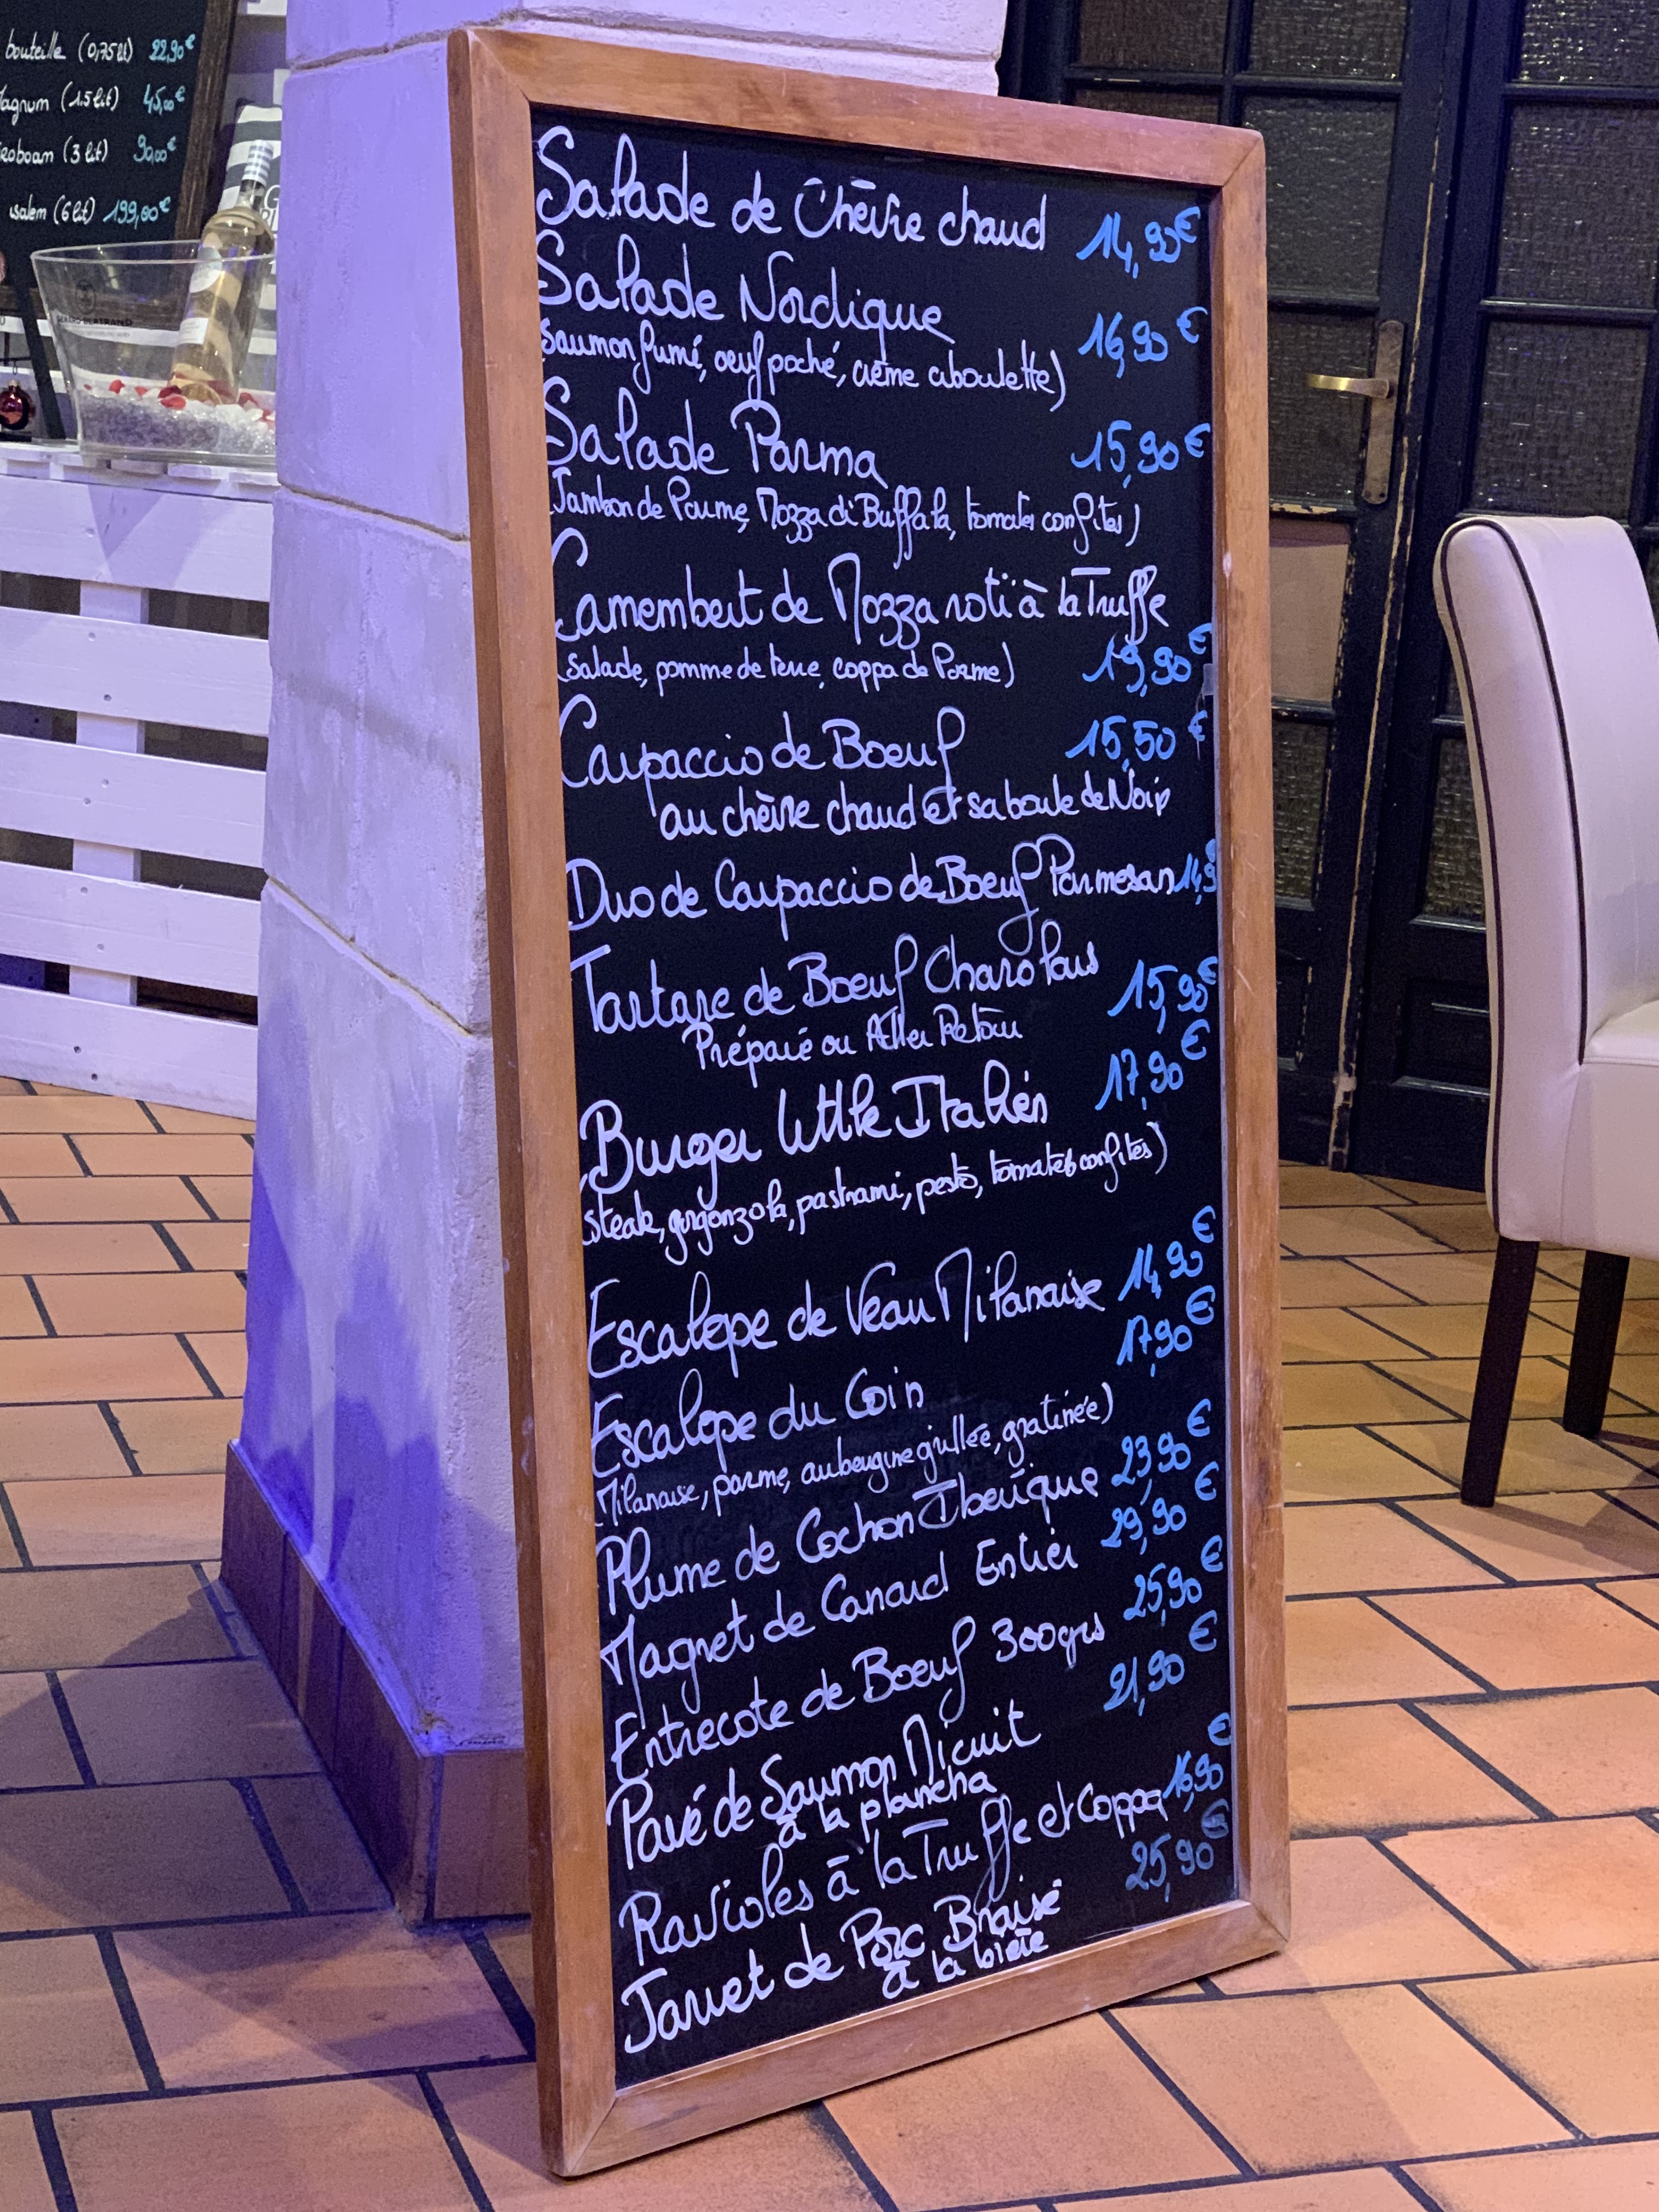 bouteille (0,75lt) 22,90€
agnum (1.5 lit) 45,00€
eroboam (3 lit) 90,00€
usalem (6 lit) 199,00€
BERTRAND
Salade de Chèvre chaud 14,90€
Salade Nordique 16,90€
saumon fumé, oeuf poché, crème ciboulette)
Salade Parma 15,90€
Jambon de Parme, Mozza di Buffala, tomates confites)
Camembert de Mozza roti à la Truffe
(salade, pomme de terre, coppa de Parme) 19,90€
Carpaccio de Boeuf 15,50€
au chèvre chaud et sa boule de Noix
Duo de Carpaccio de Boeuf Parmesan 14,9
Tartare de Boeuf Charolais 15,90€
Préparé ou Aller Retour
Burger Little Italien 17,90€
(steak, gorgonzola, pastrami, pesto, tomates confites)
Escalope de Veau Milanaise 14,90€
Escalope du Coin 17,90€
(Milanaise, parme, aubergine grillée, gratinée)
Plume de Cochon Iberique 23,90€
Magret de Canard Entier 29,90€
Entrecote de Boeuf 300grs 25,90€
Pavé de Saumon Micuit 21,90€
à la plancha
Ravioles à la Truffe et Coppa 16,90€
Jarret de Porc Braisé 25,90€
à la bière